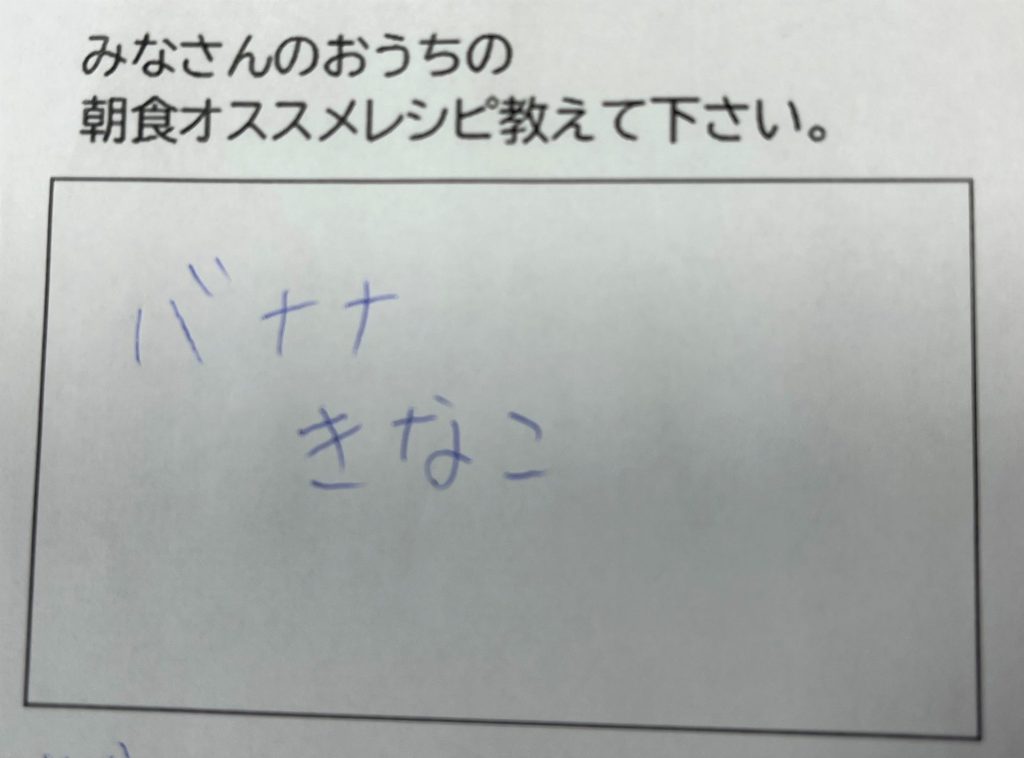 みなさんのおうちの
朝食オススメレシピ教えて下さい。
バナナ
きなこ